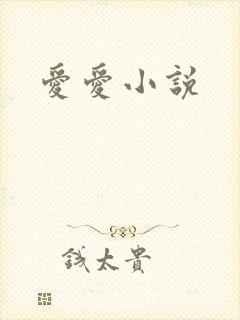 愛愛小說
錢太貴